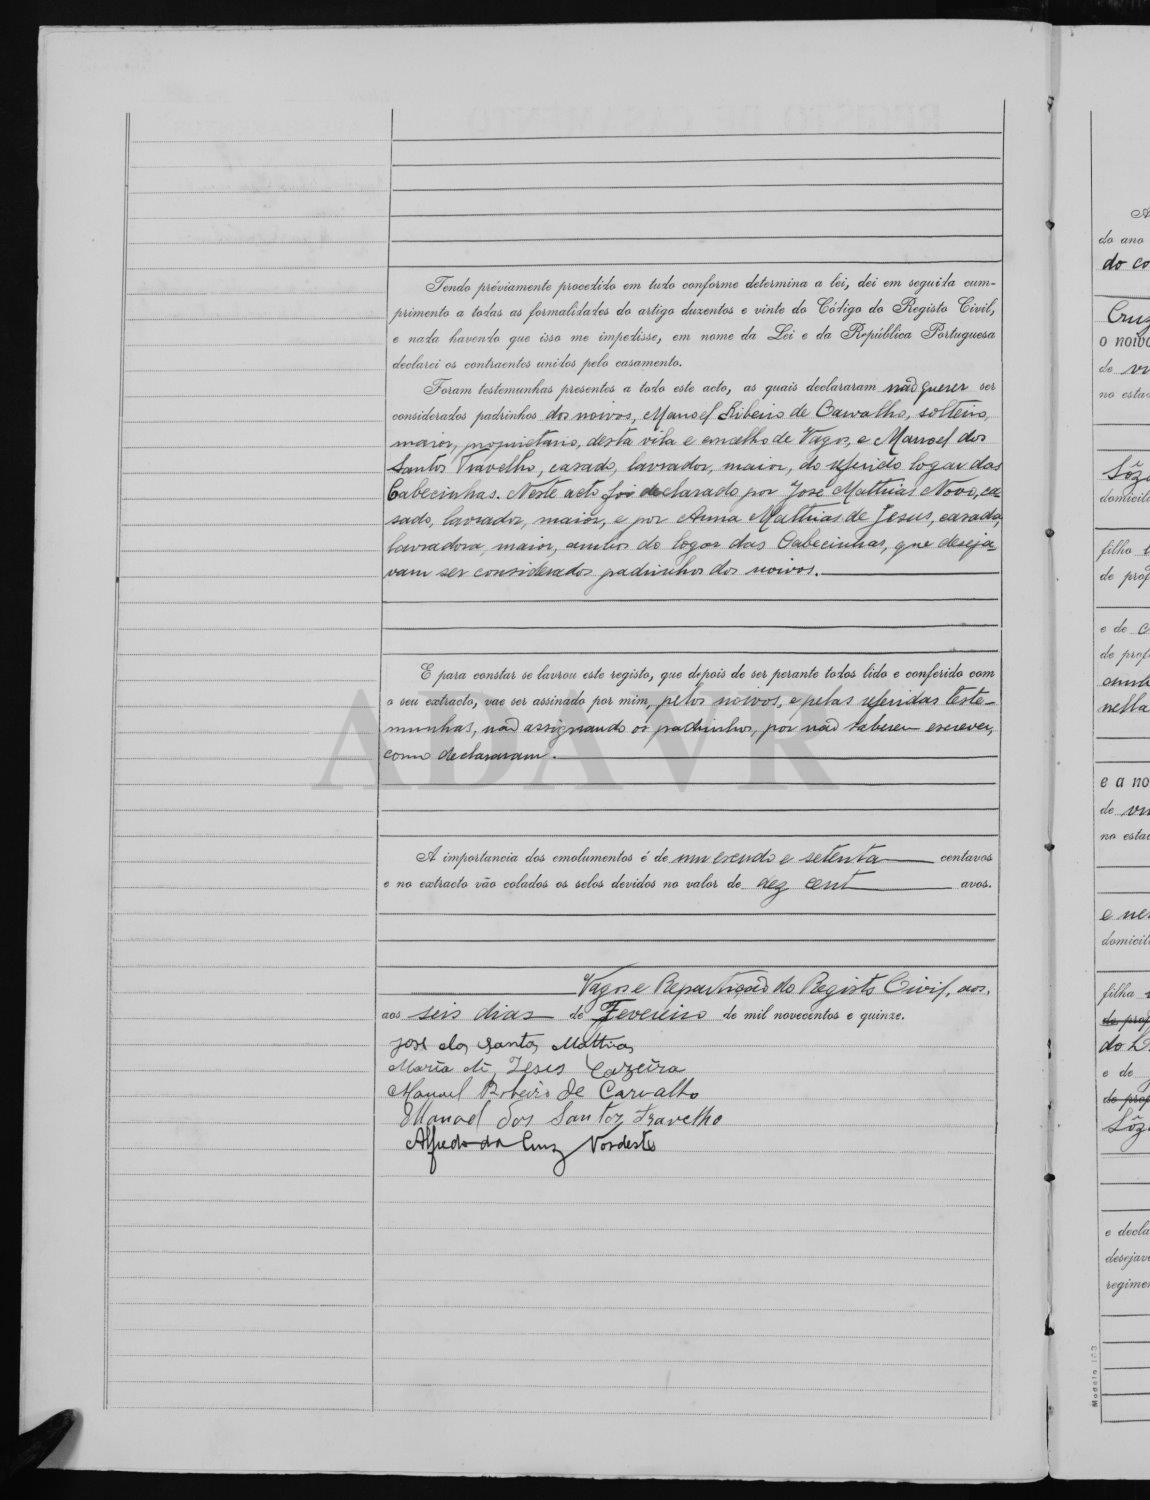 Tendo préviamente procedido em tudo conforme determina a lei, dei em seguida cum-
primento a todas as formalidades do artigo duzentos e vinte do Código do Registo Civil,
e nada havendo que isso me impedisse, em nome da Lei e da República Portuguesa
declarei os contraentes unidos pelo casamento.
Foram testemunhas presentes a todo este acto, as quais declararam não querer ser
considerados padrinhos dos noivos, Manoel Ribeiro de Carvalho, solteiro,
maior, proprietario, desta vila e concelho de Vagos, e Manoel dos
Santos Travelho, casado, lavrador, maior, do referido logar das
Cabecinhas. Neste acto foi declarado por José Mathias Novo, ca-
sado, lavrador, maior, e por Anna Mathias de Jesus, casada,
lavradora, maior, ambos do logar das Cabecinhas, que deseja-
vam ser considerados padrinhos dos noivos.
E para constar se lavrou este registo, que depois de ser perante todos lido e conferido com
o seu extracto, vae ser assinado por mim, pelos noivos, e pelas referidas teste-
munhas, não assignando os padrinhos, por não saberem escrever,
como declararam.
A importancia dos emolumentos é de um escudo e setenta centavos
e no extracto vão colados os selos devidos no valor de dez cent avos.
Vagos e Repartição do Registo Civil, aos,
aos seis dias de Fevereiro de mil novecentos e quinze.
José dos Santos Mathias
Maria de Jesus Cazeira
Manuel Ribeiro de Carvalho
Manoel dos Santos Travelho
Alfredo da Cruz Nordeste
ADAVR
do ano
do co
Cruz
o noivo
de
no estad
Sôza
domicili
filho
de prof
e de
de prof
nella
e a no
de
no estad
e
domicili
filha
de prof
do
e de
de prof
Sôz
e decla
desejav
regimen
Modelo 103